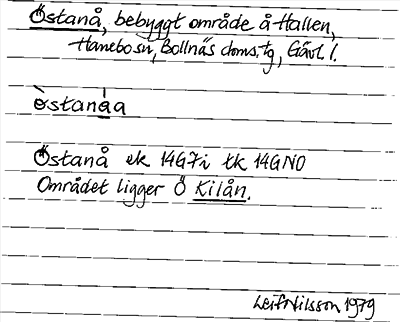 Östanå, bebyggt område å Hallen,
Hanebo sn, Bollnäs doms. tg, Gävl l.
ò̀stanåa
Östanå ek 14G7i tk 14GNO
Området ligger Ö Kilån.
Leif Nilsson 1979